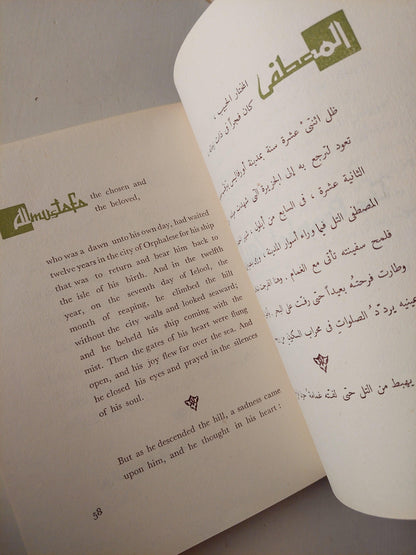 almustafa
the chosen and
the beloved,
who was a dawn unto his own day, had waited
twelve years in the city of Orphalese for his ship
that was to return and bear him back to
the isle of his birth. And in the twelfth
year, on the seventh day of Ielool, the
month of reaping, he climbed the hill
without the city walls and looked seaward;
and he beheld his ship coming with the
mist. Then the gates of his heart were flung
open, and his joy flew far over the sea. And
he closed his eyes and prayed in the silences
of his soul.
But as he descended the hill, a sadness came
upon him, and he thought in his heart:
58
المصطفى
المختار الحبيب ،
كان فجراً في ذات
ظل اثنتي عشرة سنة بمدينة أورفاليس
تعود لترجع به إلى الجزيرة التي شهدت
الثانية عشرة ، في السابع من أيلول ،
المصطفى التل فيما وراء أسوار المدينة ،
فلمح سفينته تأتي مع الغمام .
وطارت فرحته بعيداً حتى رفّت على
عينيه يردّد الصلوات في محراب السكينة
يهبط من التل حتى لفّته غمامة